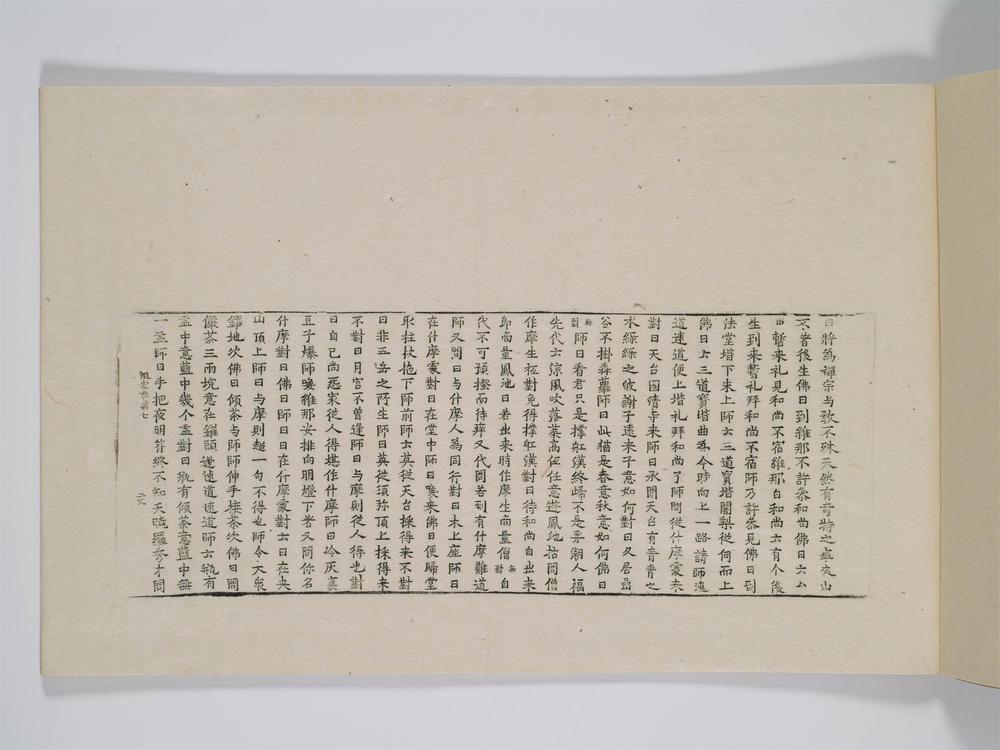 曰將為禪宗与教不殊天然有奇特之處夾山
不若後生佛日到維那不許叅和尚佛日云ム
甲暫來礼見和尚不宿維那白和尚云有个後
生到來暫礼拜和尚不宿師乃許叅見佛日到
法堂堦下未上師云三道寶堦闍梨從何而上
佛日云三道寶堦曲為今時向上一路請師速
道速道便上堦礼拜和尚了師問從什摩處來
對曰天台國清寺來師曰承聞天台有青青之
水綠綠之波謝子遠來子意如何對曰久居嵒
谷不掛森蘿師曰此猶是春意秋意如何佛日
無對師曰看君只是撑舡漢終歸不是弄潮人福
先代云涼風吹落葉高低任意遊鳳池拈問僧
作摩生祗對免得撑舡漢對曰待和尚自出來
即商量鳳池曰若出來時作摩生商量僧無對自
代不可預搔而待痒又代問若到有什摩難道
師又問曰与什摩人為同行對曰木上座師曰
在什摩處對曰在堂中師曰喚來佛日便歸堂
取拄杖拋下師前師云莫從天台採得來不對
曰非五岳之所生師曰莫從須弥頂上採得來
不對曰月宮不曾逢師曰与摩則從人得也對
曰自己尚怨家從人得堪作什摩師曰冷灰裏
豆子爆師喚維那安排向明燈下著又問你名
什摩對曰佛日師曰日在什摩處對云日在夾
山頂上師曰与摩則超一句不得也師令大衆
钁地次佛日傾茶与師師伸手接茶次佛日問
釅茶三兩垸意在钁頭邊速道速道師云瓶有
盂中意籃中幾个盂對曰瓶有傾茶意籃中無
一盂師曰手把夜明符終不知天曉羅秀才問
祖堂集第七